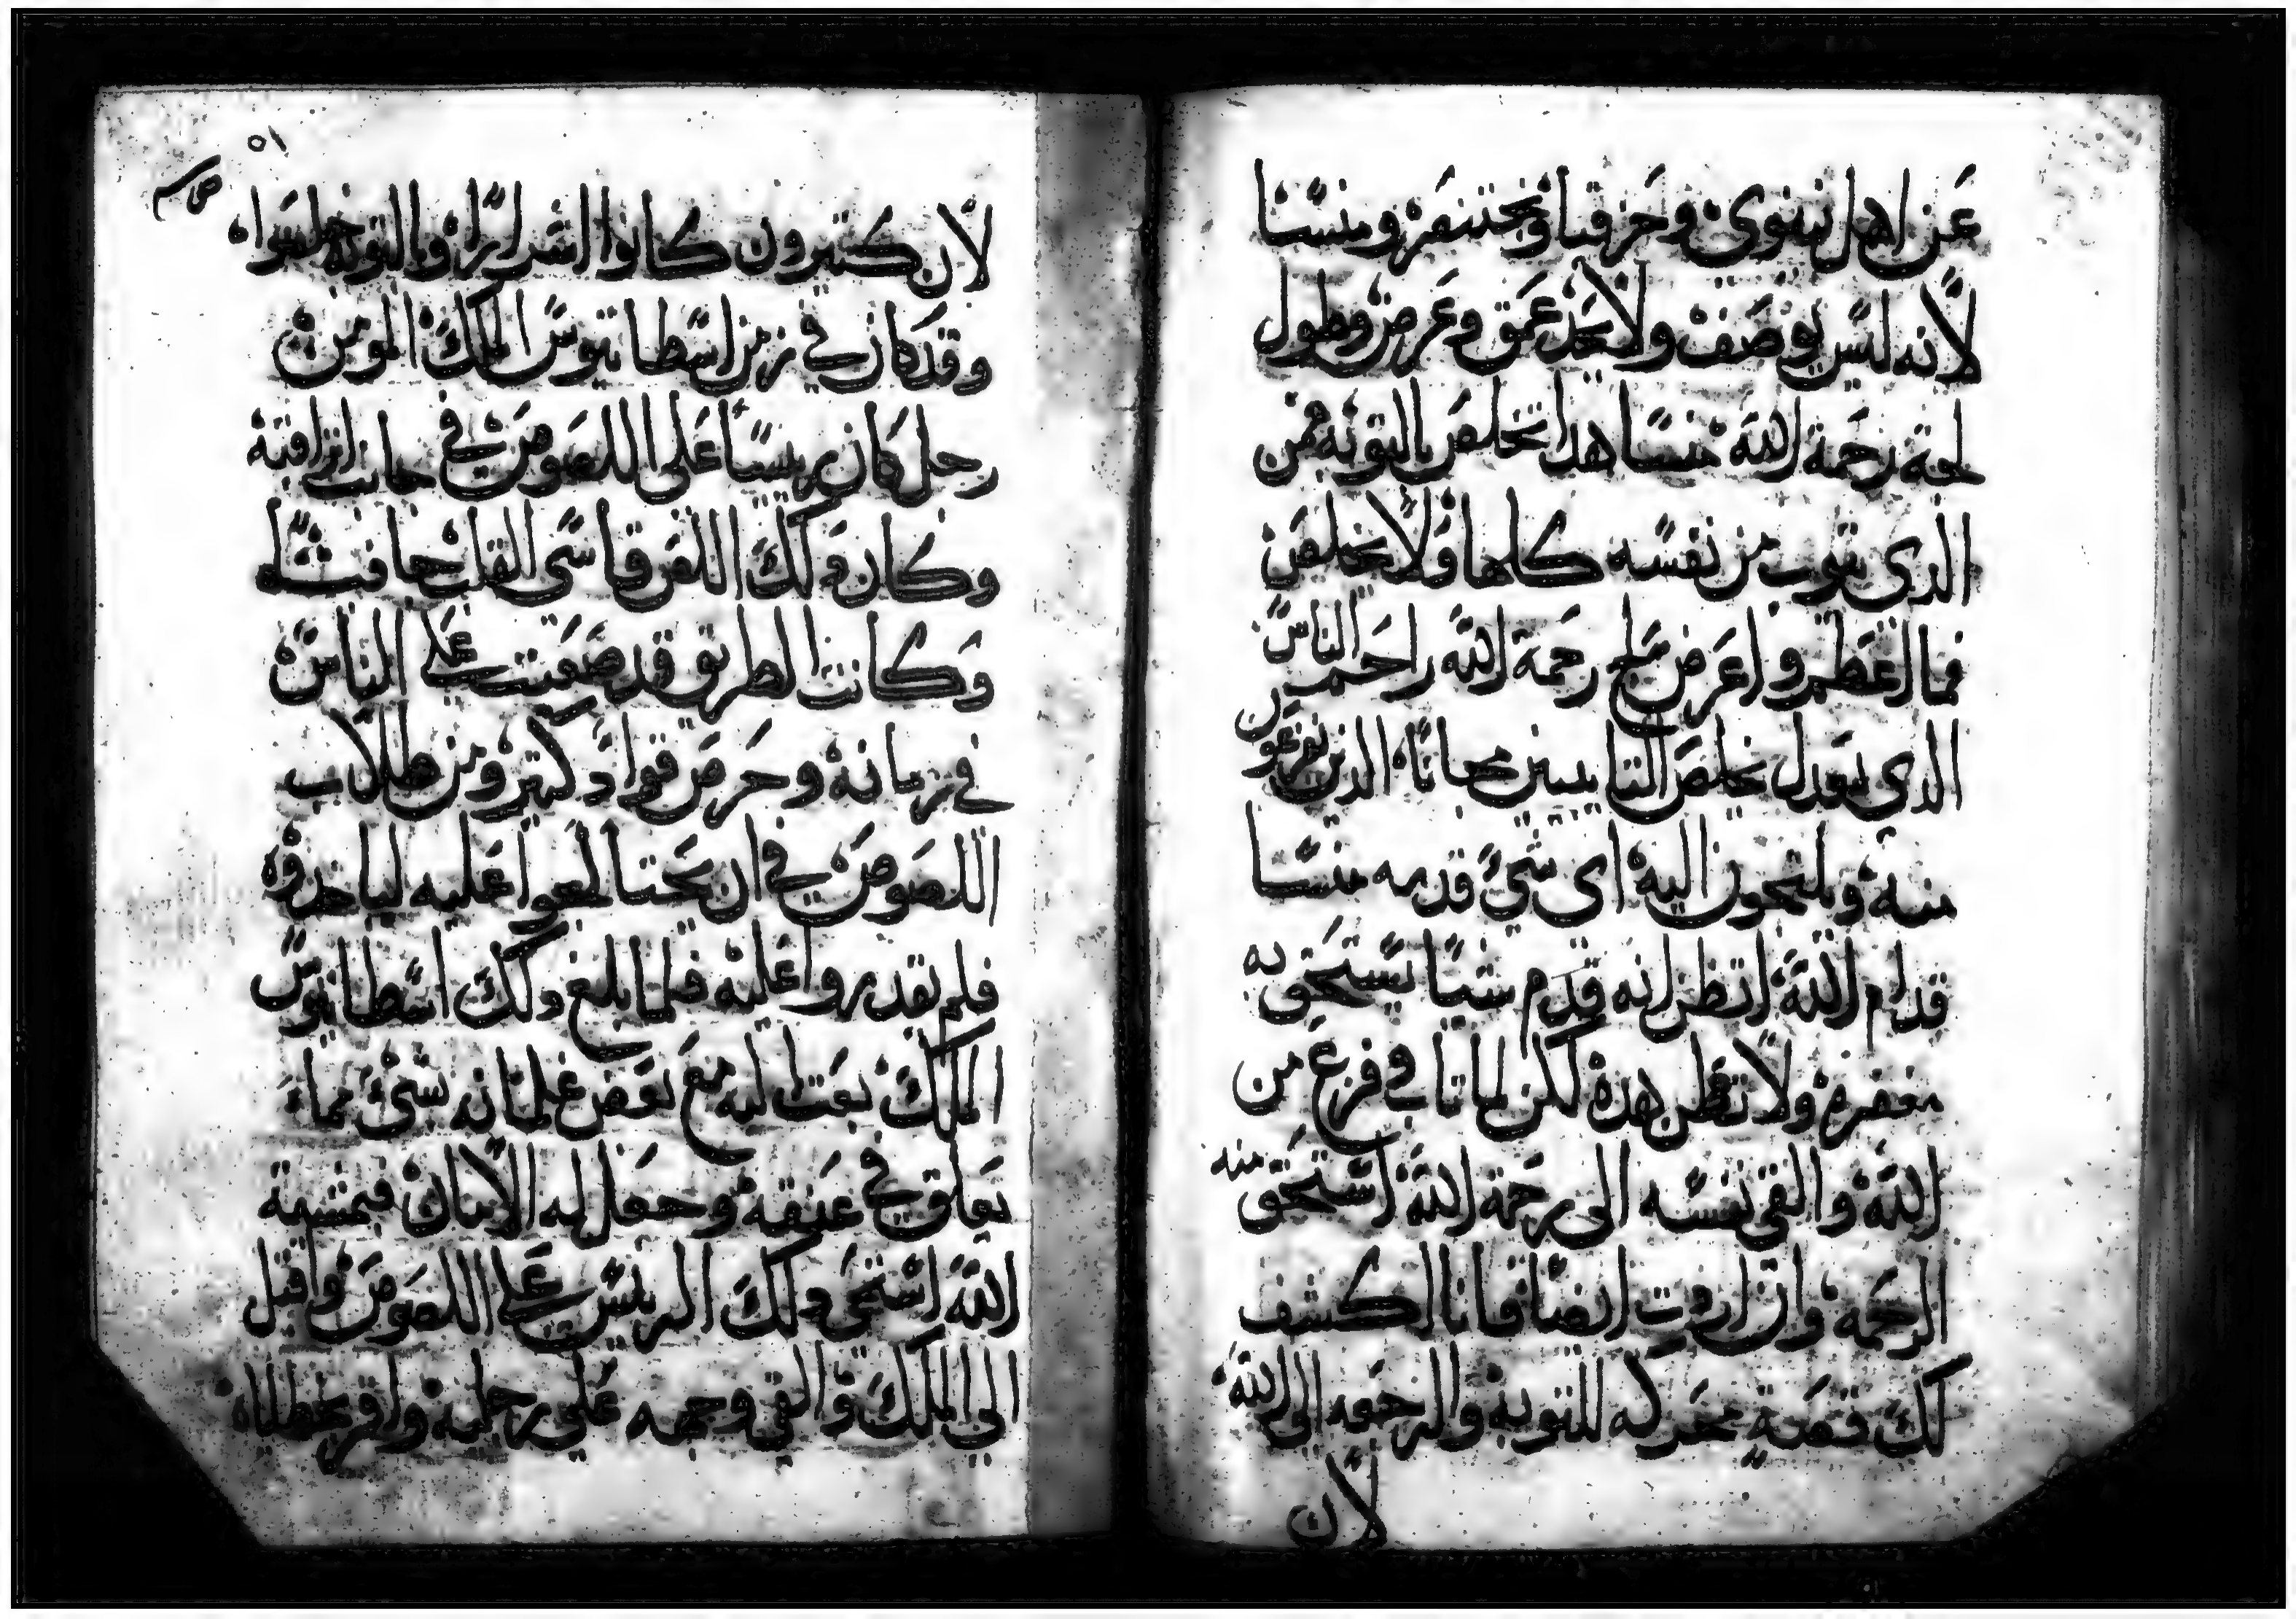 عن اهل نينوى وحزقيا وبختنصر ومنسا
لانه ليس يوصف ولا يحد عمق وعرض وطول
لجة رحمة الله منسا هذا تخلص بالتوبه فمن
الذي يتوب من نفسه كلها ولا يخلص
فما اعظم واعرض رحمة الله راحم الناس
الذي يعدل يخلص التايبين مجانا الذين يفزعون
منه ويلتجون اليه اي شي قدمه منسا
قدام الله اتظن انه قدم شيا يستحق به
مغفرة ولا تظن هذه لكن لما تاب فزع من
الله والقى نفسه الى رحمة الله استحق منه
الرحمة وان اردت ايضا فانا اكشف
لك قصة محركه للتوبة والرجعه الى الله
لان
٥١
لان كثيرون كانوا اشرارا وبالتوبه خلصوا
وقد كان في زمن اسطانيوس الملك المومن
رجل كان ريسا على اللصوص في جانب اتراقية
وكان ذلك اللص قاسي القلب جدا
وكانت الطريق قد صعبت على الناس
في زمانه وحرص قواد كثير ومن طلاب
اللصوص في ان يحتالوا عليه لياخدوه
فلم يقدروا عليه فلما بلغ ذلك اسطانيوس
الملك بعث اليه مع بعض غلمانه بشي مما
يعلق في عنقه وجعل له الامان فبمشية
الله استحى ذلك الريس على اللصوص واقبل
الى الملك والقى وجهه على رجليه واقر بخطاياه